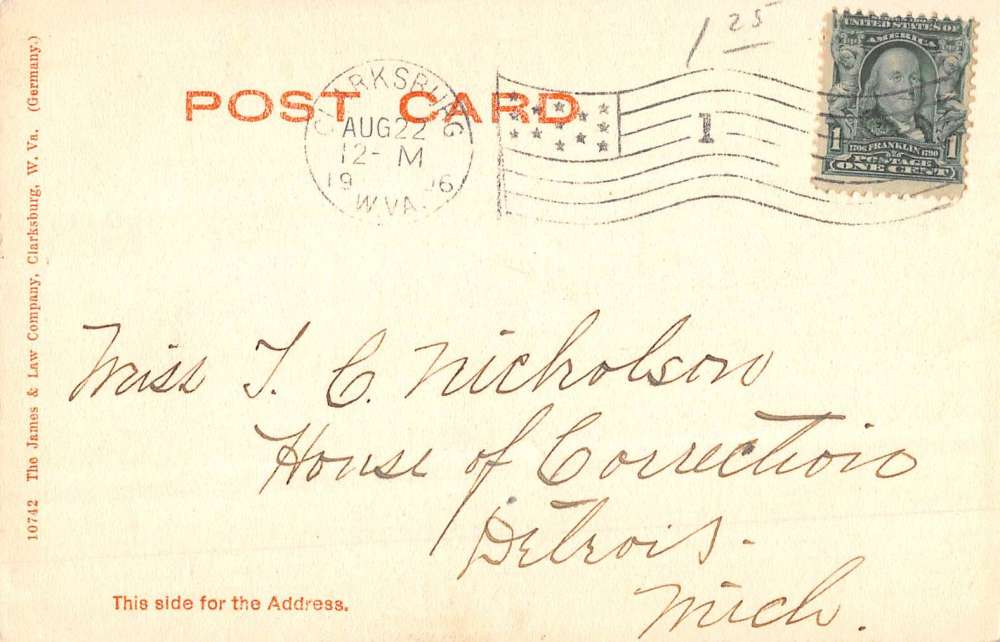 1 25
UNITED STATES OF
AMERICA
1 1
1706 FRANKLIN 1790
POSTAGE
ONE CENT
POST CARD
CLARKSBURG
AUG 22
12- M
19 06
W.VA.
1
10742 The James & Law Company, Clarksburg, W. Va. (Germany.)
Miss T. C. Nicholson
House of Correction
Detroit.
Mich.
This side for the Address.